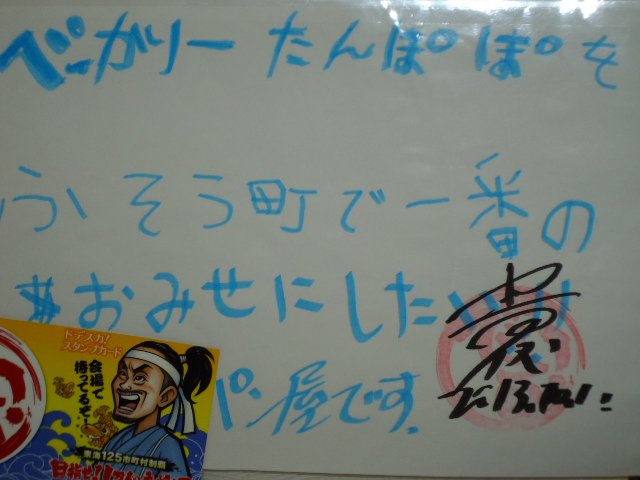 べーかりー たんぽぽを
ふそう町で一番の
おみせにしたい
パン屋です。
ドデスカ!
スタンプカード
会場で
待ってるぞ!
東海125市町村制覇
目指せ!